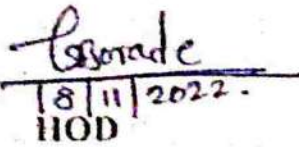 18/11/2022.
HOD